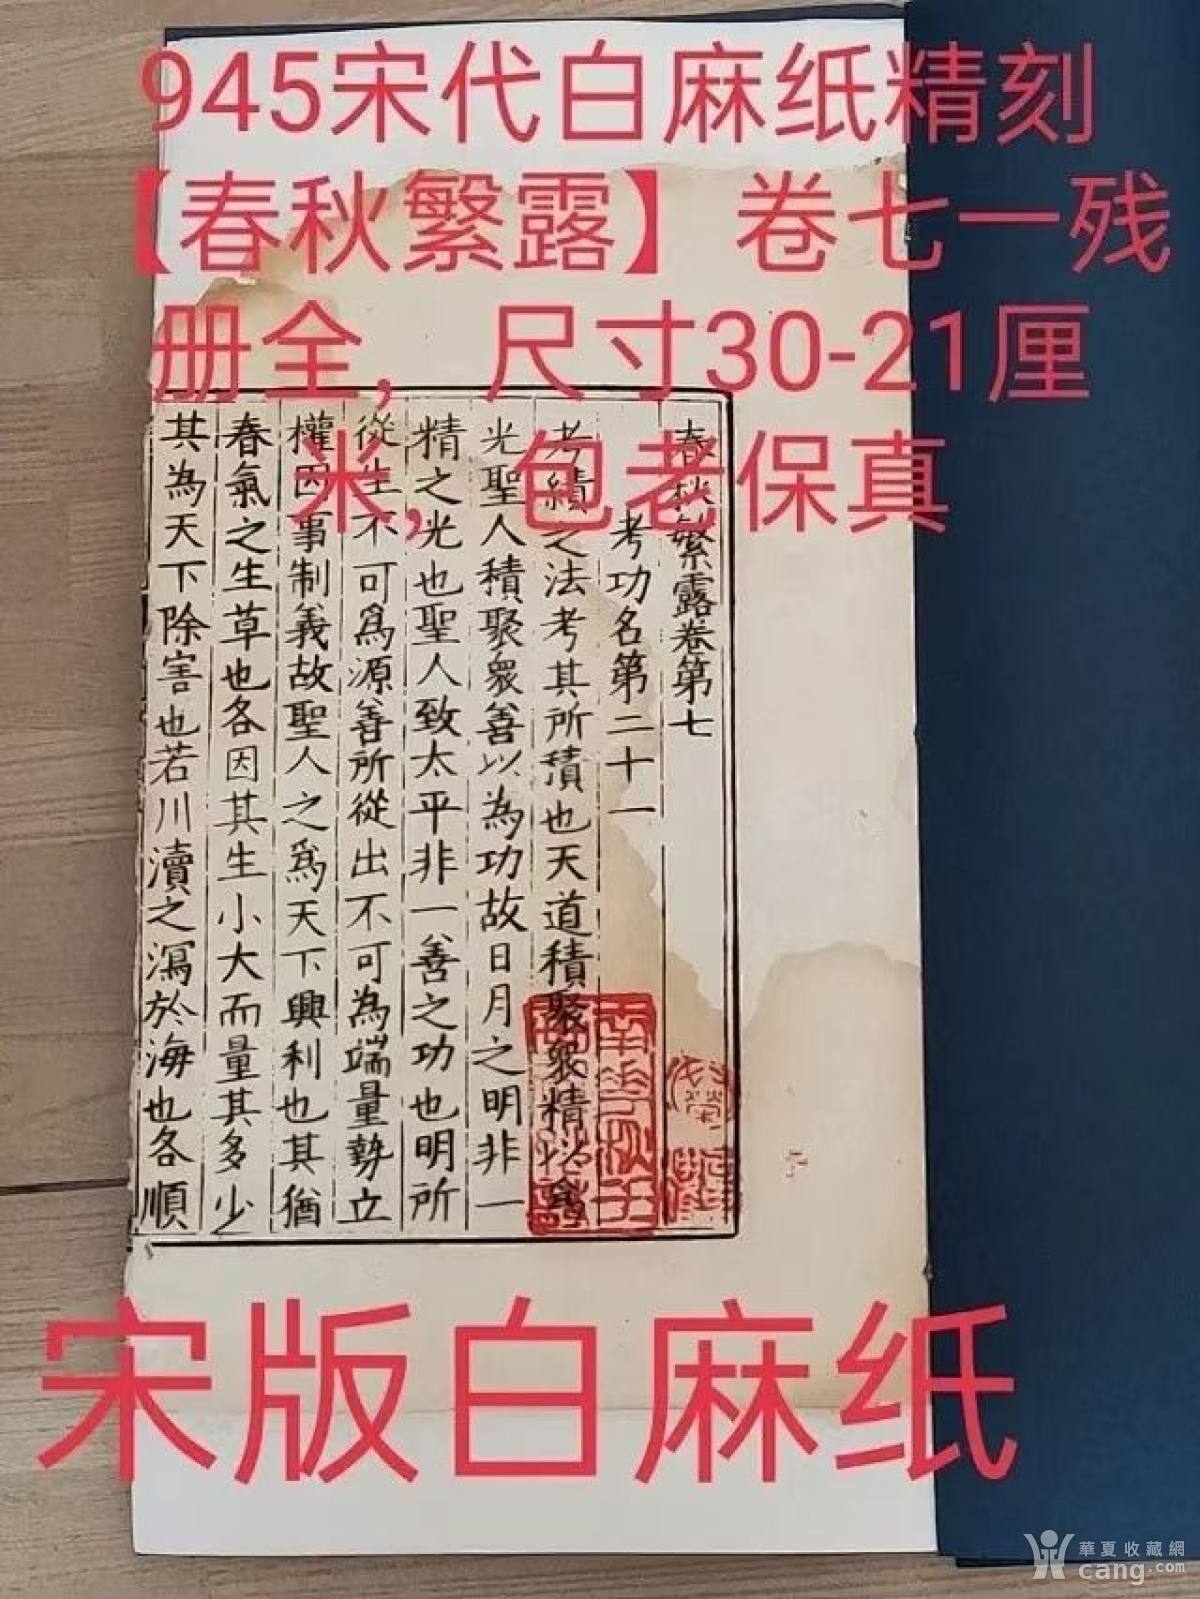 945宋代白麻纸精刻
【春秋繁露】卷七一残
册全，尺寸30-21厘
米，包老保真
春秋繁露卷第七
考功名第二十一
考績之法考其所積也天道積聚衆精以為
光聖人積聚衆善以為功故日月之明非一
精之光也聖人致太平非一善之功也明所
從生不可爲源善所從出不可為端量勢立
權因事制義故聖人之爲天下興利也其猶
春氣之生草也各因其生小大而量其多少
其為天下除害也若川瀆之瀉於海也各順
宋版白麻纸
華夏收藏網
cang.com